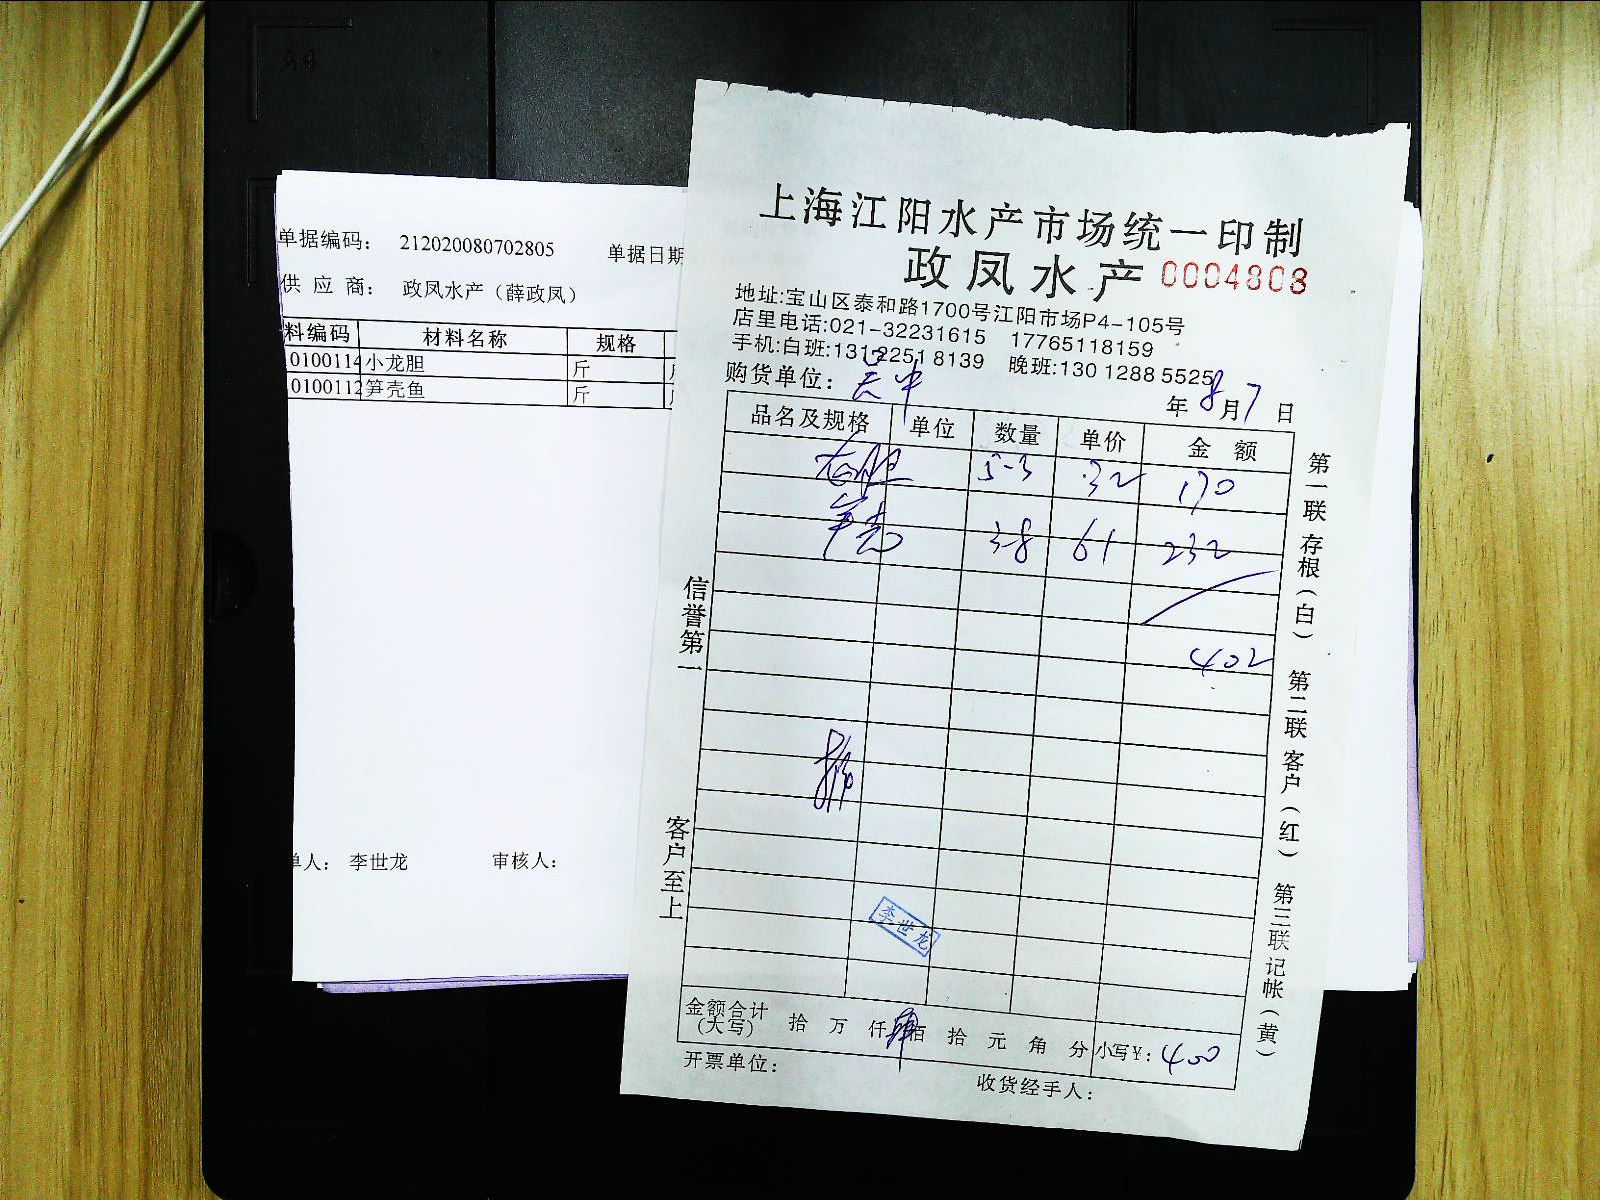 单据编码： 212020080702805 单据日期
供 应 商： 政凤水产（薛政凤）
料编码 材料名称 规格
0100114 小龙胆 斤
0100112 笋壳鱼 斤
单人： 李世龙 审核人：
上海江阳水产市场统一印制
政凤水产 0004803
地址:宝山区泰和路1700号江阳市场P4-105号
店里电话:021-32231615 17765118159
手机:白班:131 2251 8139 晚班:130 1288 5525
购货单位：
年 8月7日
品名及规格 单位 数量 单价 金 额
龙胆 5-3 32 170
笋壳 3-8 61 232
402
李世龙
金额合计
(大写) 拾 万 仟 肆佰 拾 元 角 分 小写¥: 400
开票单位： 收货经手人：
信誉第一
客户至上
第一联存根（白） 第二联客户（红） 第三联记帐（黄）